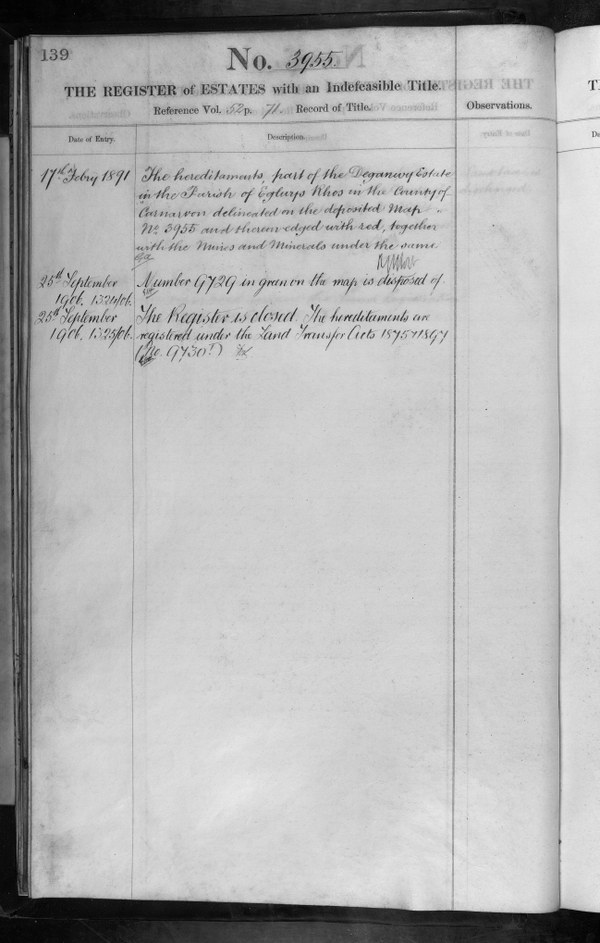 139
No. 3955.
THE REGISTER of ESTATES with an Indefeasible Title.
Reference Vol. 52 p. 71. Record of Title.
Observations.
Date of Entry.
Description.
17th Febry 1891
The hereditaments, part of the Deganwy Estate
in the Parish of Eglwys Rhos in the County of
Carnarvon delineated on the deposited Map
No 3955 and therein edged with red, together
with the Mines and Minerals under the same.
25th September
1906. 1324/06.
Number 9729 in green on the map is disposed of.
25th September
1906. 1325/06.
The Register is closed. The hereditaments are
registered under the Land Transfer Acts 1875 & 1897
(No. 9730)